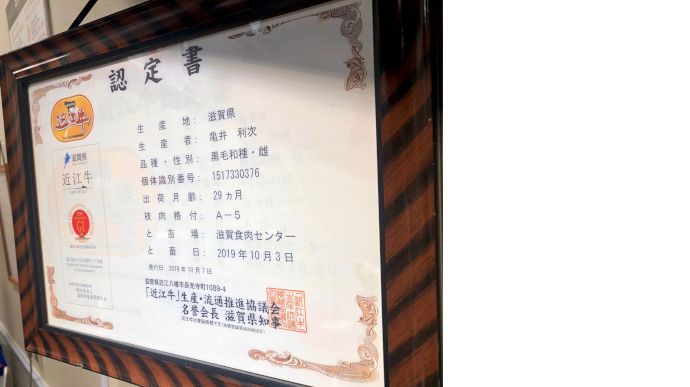 認定書
近江牛
滋賀県
近江牛
GI
生産地: 滋賀県
生産者: 亀井 利次
品種・性別: 黒毛和種・雌
個体識別番号: 1517330376
出荷月齢: 29ヵ月
枝肉格付: A-5
と畜場: 滋賀食肉センター
と畜日: 2019年10月3日
発行日:2019年10月7日
滋賀県近江八幡市長光寺町1089-4
「近江牛」生産・流通推進協議会
名誉会長 滋賀県知事